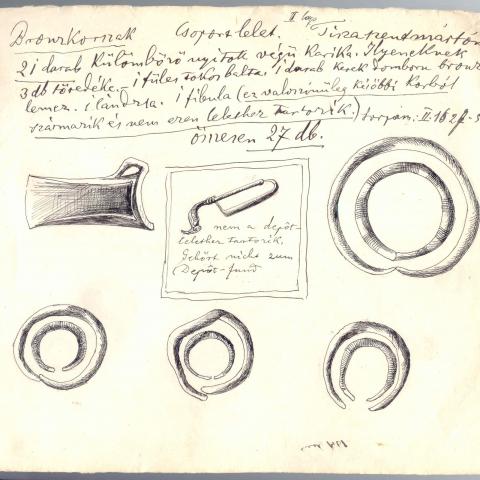 Bronzkorszak Csoport lelet. II lap Tiszaszentmárton
21 darab különböző nyitok végű karika. Ilyeneknek
3 db töredéke. 1 füles tokos balta. 1 darab kerek domború bronz
lemez. 1 lándzsa. 1 fibula (ez valószinűleg későbbi korból
származik és nem ezen lelethez tartozik.)
össesen 27 db.
nem a depôt-
lelethez tartozik.
Gehört nicht zum
Depôt-fund